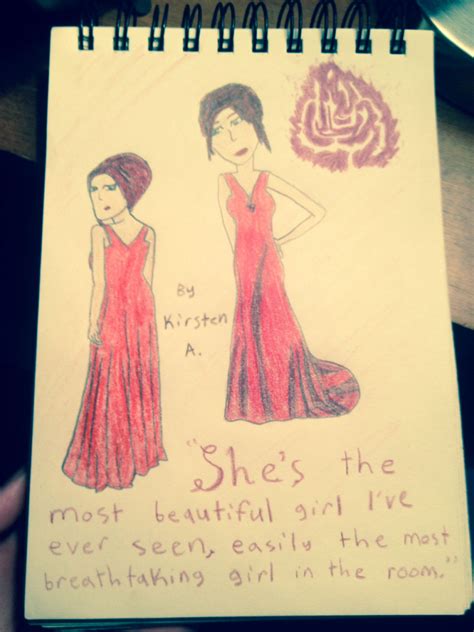 By
Kirsten
A.
"She's the
most beautiful girl I've
ever seen, easily the most
breathtaking girl in the room."